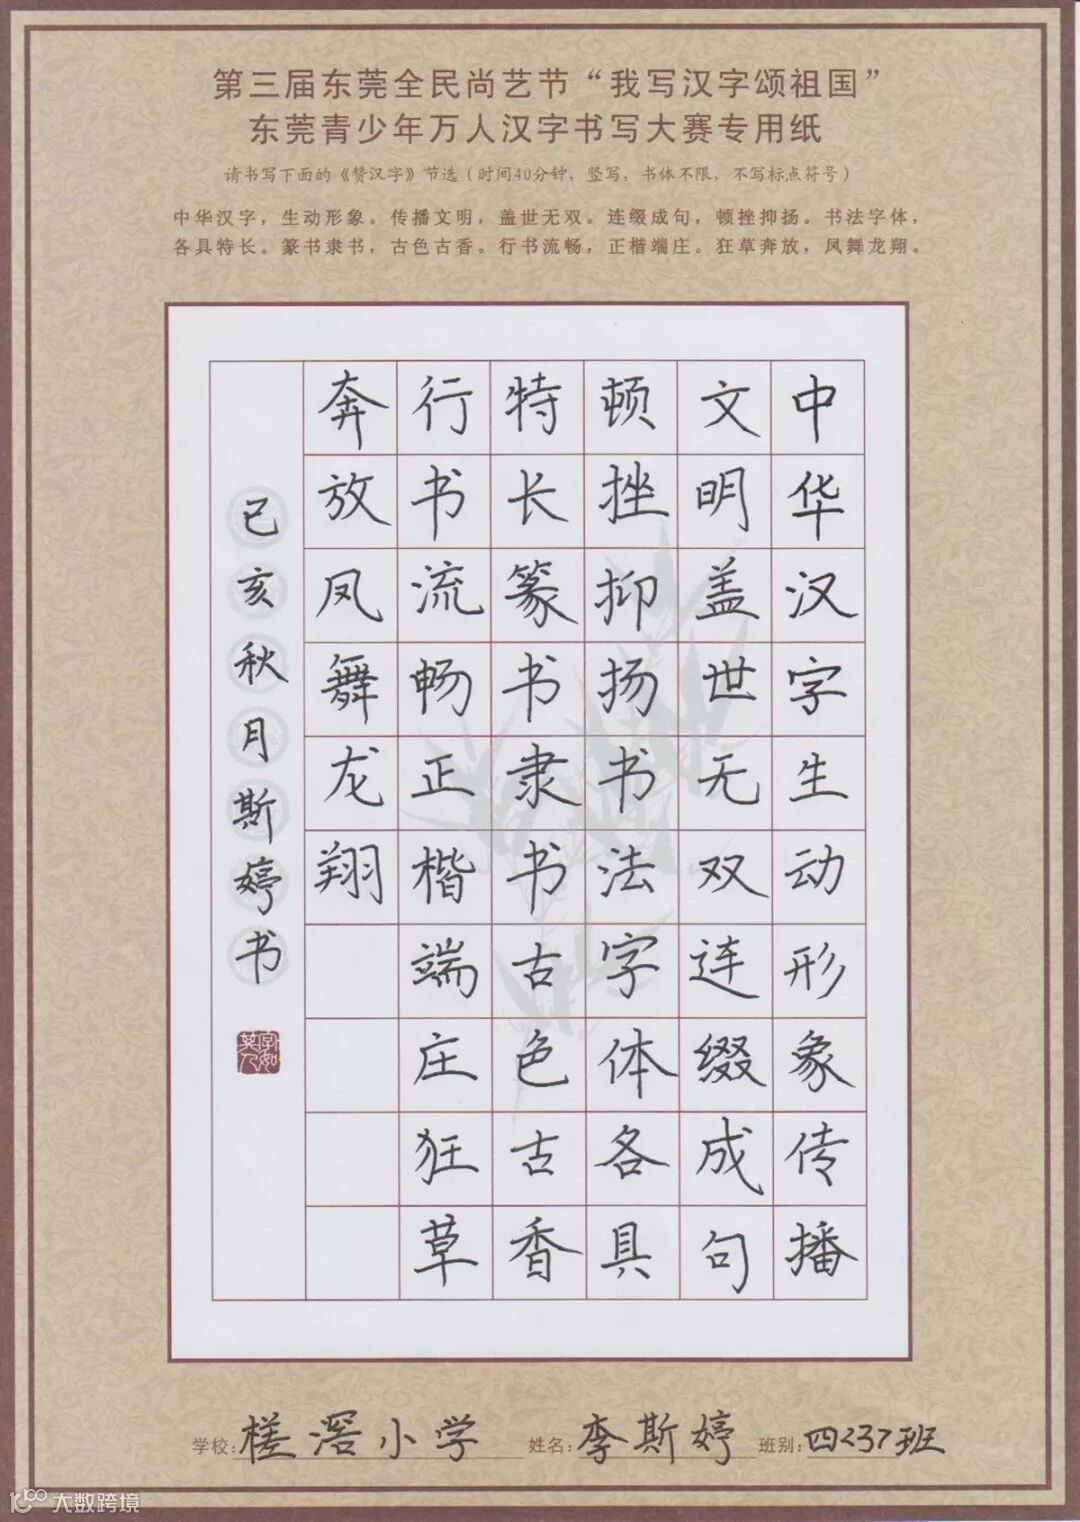 第三届东莞全民尚艺节“我写汉字颂祖国”
东莞青少年万人汉字书写大赛专用纸
请书写下面的《赞汉字》节选（时间40分钟，竖写，书体不限，不写标点符号）
中华汉字，生动形象。传播文明，盖世无双。连缀成句，顿挫抑扬。书法字体，
各具特长。篆书隶书，古色古香。行书流畅，正楷端庄。狂草奔放，凤舞龙翔。
中华汉字生动形象传播
文明盖世无双连缀成句
顿挫抑扬书法字体各具
特长篆书隶书古色古香
行书流畅正楷端庄狂草
奔放凤舞龙翔
己亥秋月斯婷书
字如其人
学校:槎滘小学 姓名:李斯婷 班别:四(23)班
大数跨境